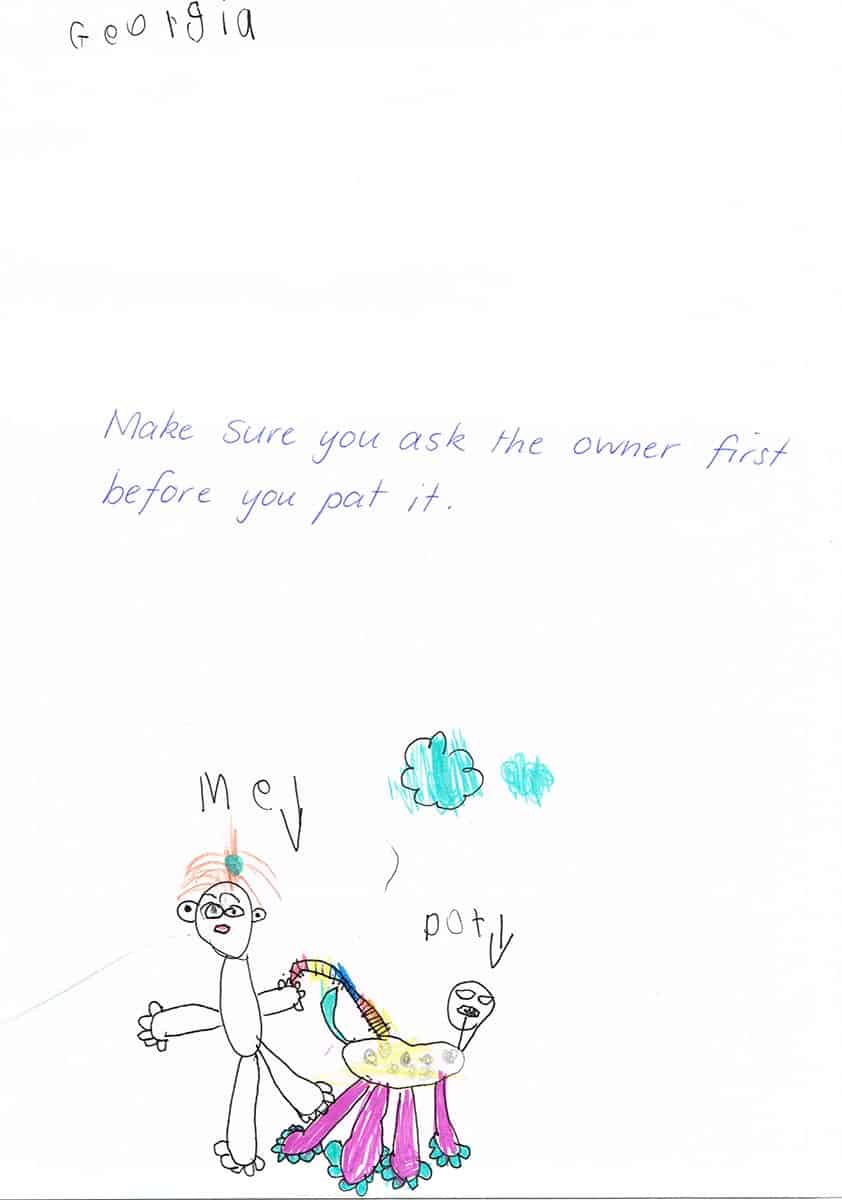 Georgia
Make sure you ask the owner first
before you pat it.
me
pot